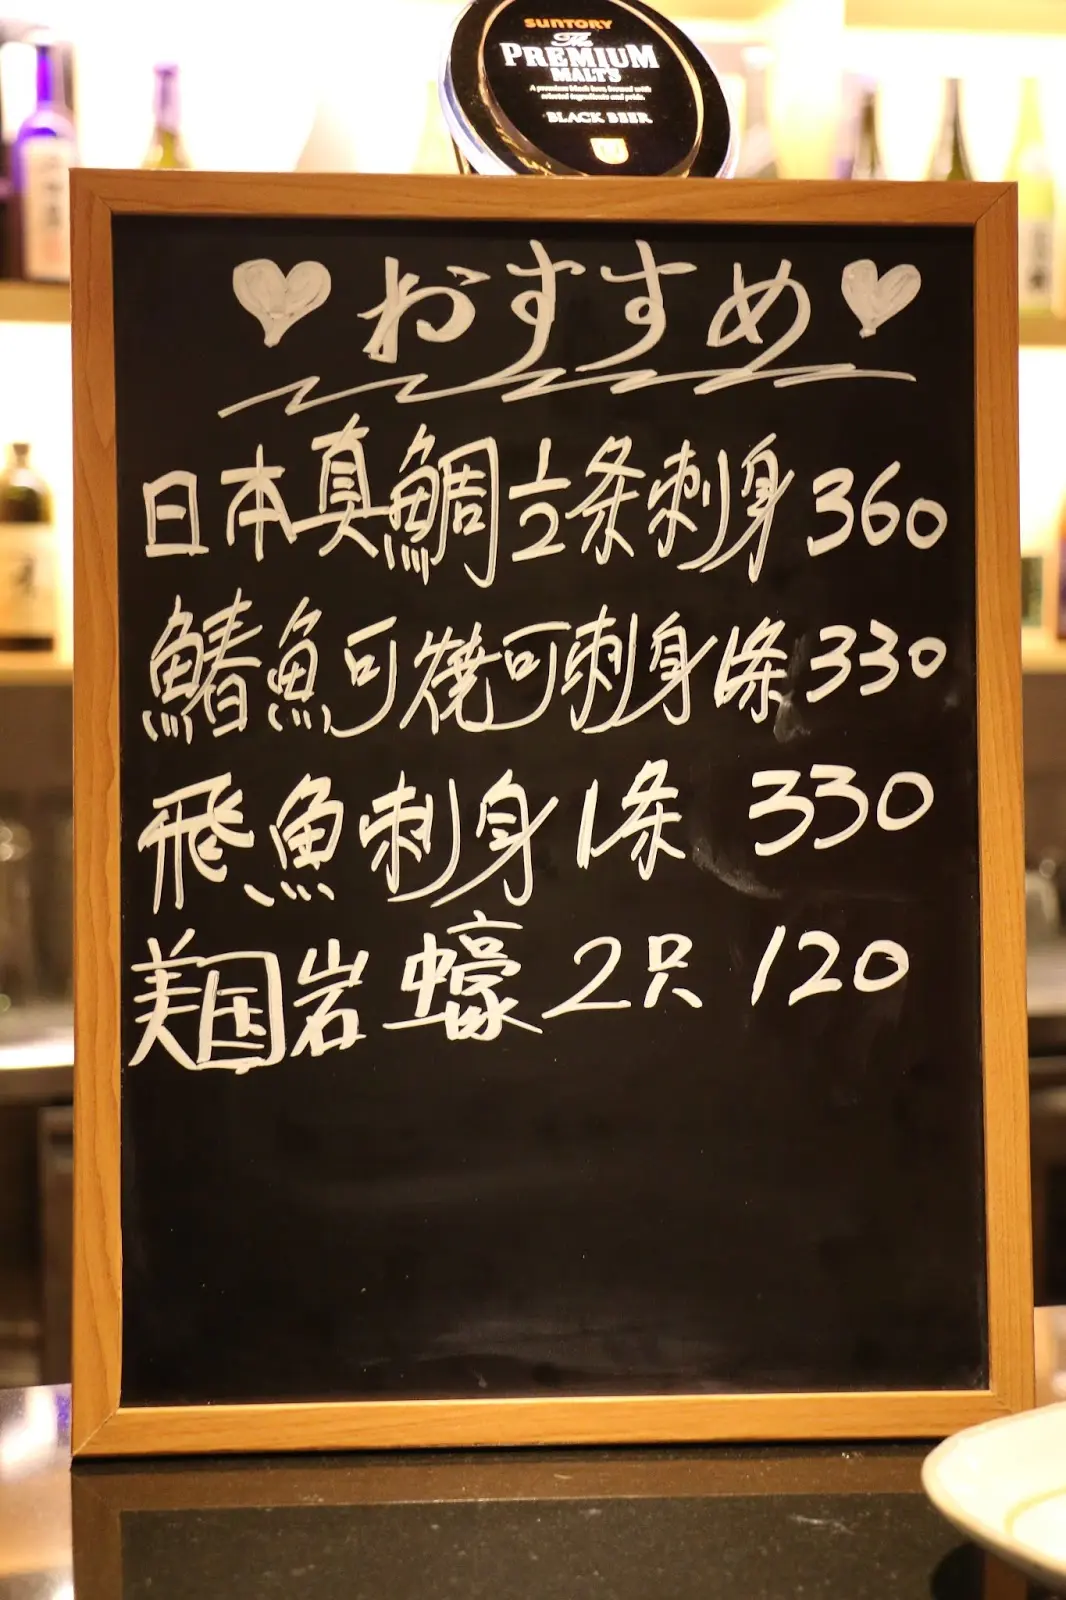 SUNTORY
The
PREMIUM
MALT'S
A premium black beer, brewed with
selected ingredients and pride.
BLACK BEER
♥おすすめ♥
日本真鯛½条刺身360
鰆魚可燒可刺身條330
飛魚刺身1条 330
美国岩蠔2只 120